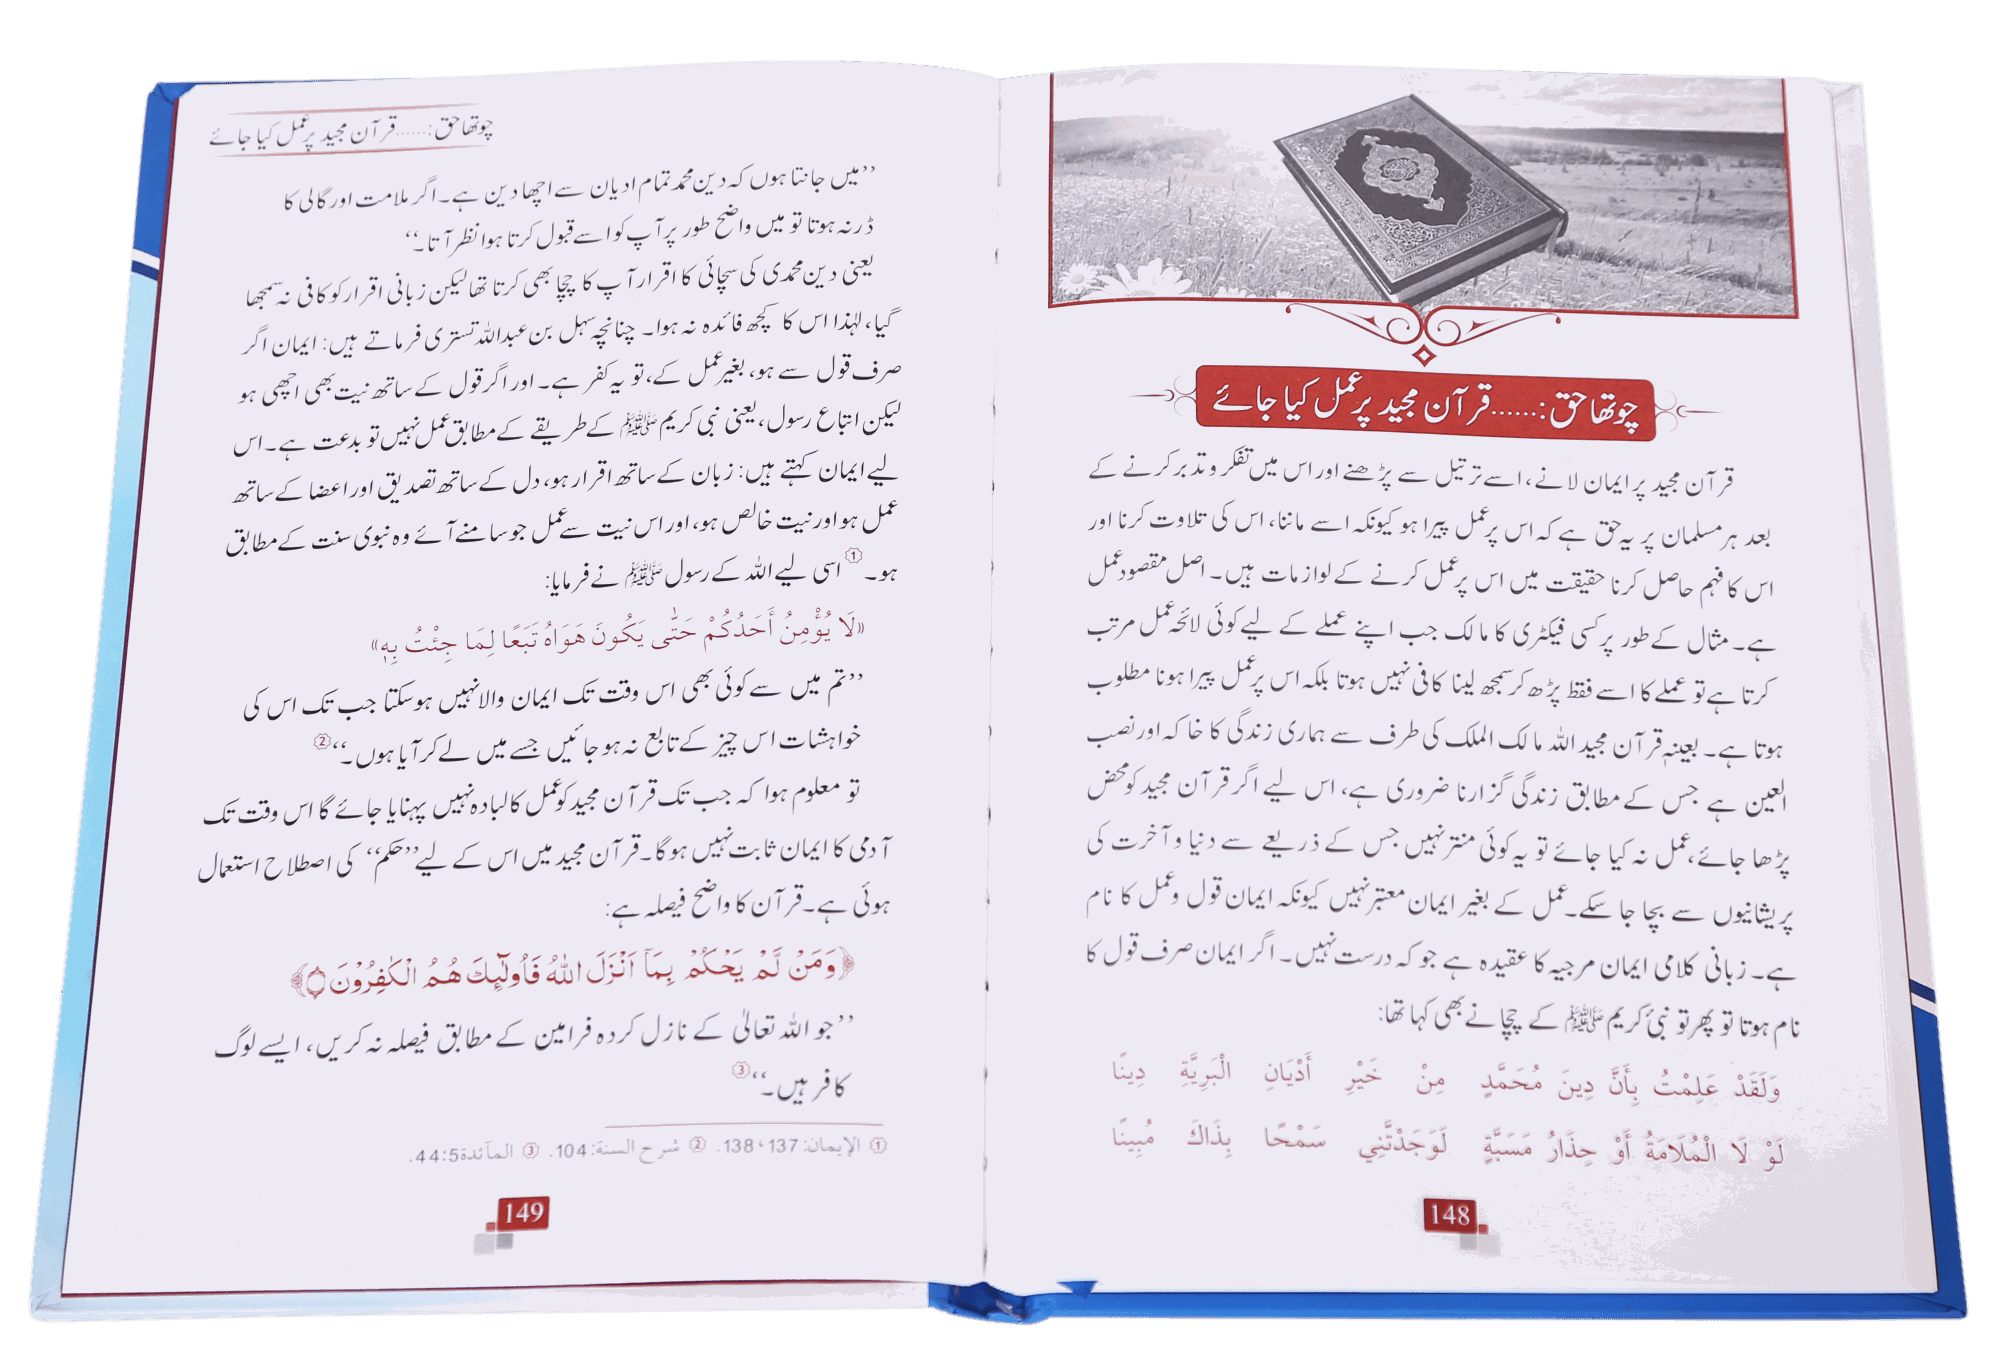 چوتھا حق:......قرآن مجید پر عمل کیا جائے
قرآن مجید پر ایمان لانے، اسے ترتیل سے پڑھنے اور اس میں تفکر و تدبر کرنے کے
بعد ہر مسلمان پر یہ حق ہے کہ اس پر عمل پیرا ہو کیونکہ اسے ماننا، اس کی تلاوت کرنا اور
اس کا فہم حاصل کرنا حقیقت میں اس پر عمل کرنے کے لوازمات ہیں۔ اصل مقصود عمل
ہے۔ مثال کے طور پر کسی فیکٹری کا مالک جب اپنے عملے کے لیے کوئی لائحہ عمل مرتب
کرتا ہے تو عملے کا اسے فقط پڑھ کر سمجھ لینا کافی نہیں ہوتا بلکہ اس پر عمل پیرا ہونا مطلوب
ہوتا ہے۔ بعینہٖ قرآن مجید اللہ مالک الملک کی طرف سے ہماری زندگی کا خاکہ اور نصب
العین ہے جس کے مطابق زندگی گزارنا ضروری ہے، اس لیے اگر قرآن مجید کو محض
پڑھا جائے، عمل نہ کیا جائے تو یہ کوئی منتر نہیں جس کے ذریعے سے دنیا و آخرت کی
پریشانیوں سے بچا جا سکے۔ عمل کے بغیر ایمان معتبر نہیں کیونکہ ایمان قول و عمل کا نام
ہے۔ زبانی کلامی ایمان مرجیہ کا عقیدہ ہے جو کہ درست نہیں۔ اگر ایمان صرف قول کا
نام ہوتا تو پھر تو نبیٔ کریم ﷺ کے چچا نے بھی کہا تھا:
وَلَقَدْ عَلِمْتُ بِأَنَّ دِينَ مُحَمَّدٍ مِنْ خَيْرِ أَدْيَانِ الْبَرِيَّةِ دِينًا
لَوْ لَا الْمُلَامَةُ أَوْ حِذَارُ مَسَبَّةٍ لَوَجَدْتَّنِي سَمْحًا بِذَاكَ مُبِينًا
148
چوتھا حق:......قرآن مجید پر عمل کیا جائے
’’میں جانتا ہوں کہ دین محمد تمام ادیان سے اچھا دین ہے۔ اگر ملامت اور گالی کا
ڈر نہ ہوتا تو میں واضح طور پر آپ کو اسے قبول کرتا ہوا نظر آتا۔‘‘
یعنی دین محمدی کی سچائی کا اقرار آپ کا چچا بھی کرتا تھا لیکن زبانی اقرار کو کافی نہ سمجھا
گیا، لہٰذا اس کا کچھ فائدہ نہ ہوا۔ چنانچہ سہل بن عبداللہ تستری فرماتے ہیں: ایمان اگر
صرف قول سے ہو، بغیر عمل کے، تو یہ کفر ہے۔ اور اگر قول کے ساتھ نیت بھی اچھی ہو
لیکن اتباع رسول، یعنی نبی کریم ﷺ کے طریقے کے مطابق عمل نہیں تو بدعت ہے۔ اس
لیے ایمان کہتے ہیں: زبان کے ساتھ اقرار ہو، دل کے ساتھ تصدیق اور اعضا کے ساتھ
عمل ہو اور نیت خالص ہو، اور اس نیت سے عمل جو سامنے آئے وہ نبوی سنت کے مطابق
ہو۔① اسی لیے اللہ کے رسول ﷺ نے فرمایا:
«لَا يُؤْمِنُ أَحَدُكُمْ حَتّٰى يَكُونَ هَوَاهُ تَبَعًا لِمَا جِئْتُ بِهٖ»
’’تم میں سے کوئی بھی اس وقت تک ایمان والا نہیں ہو سکتا جب تک اس کی
خواہشات اس چیز کے تابع نہ ہو جائیں جسے میں لے کر آیا ہوں۔‘‘②
تو معلوم ہوا کہ جب تک قرآن مجید کو عمل کا لبادہ نہیں پہنایا جائے گا اس وقت تک
آدمی کا ایمان ثابت نہیں ہوگا۔ قرآن مجید میں اس کے لیے ’’حکم‘‘ کی اصطلاح استعمال
ہوئی ہے۔ قرآن کا واضح فیصلہ ہے:
﴿وَمَنْ لَّمْ يَحْكُمْ بِمَآ اَنْزَلَ اللّٰهُ فَاُولٰٓئِكَ هُمُ الْكٰفِرُوْنَ۝﴾
’’جو اللہ تعالیٰ کے نازل کردہ فرامین کے مطابق فیصلہ نہ کریں، ایسے لوگ
کافر ہیں۔‘‘③
① الإیمان: 137، 138. ② شرح السنة: 104. ③ المآئدة 44:5.
149